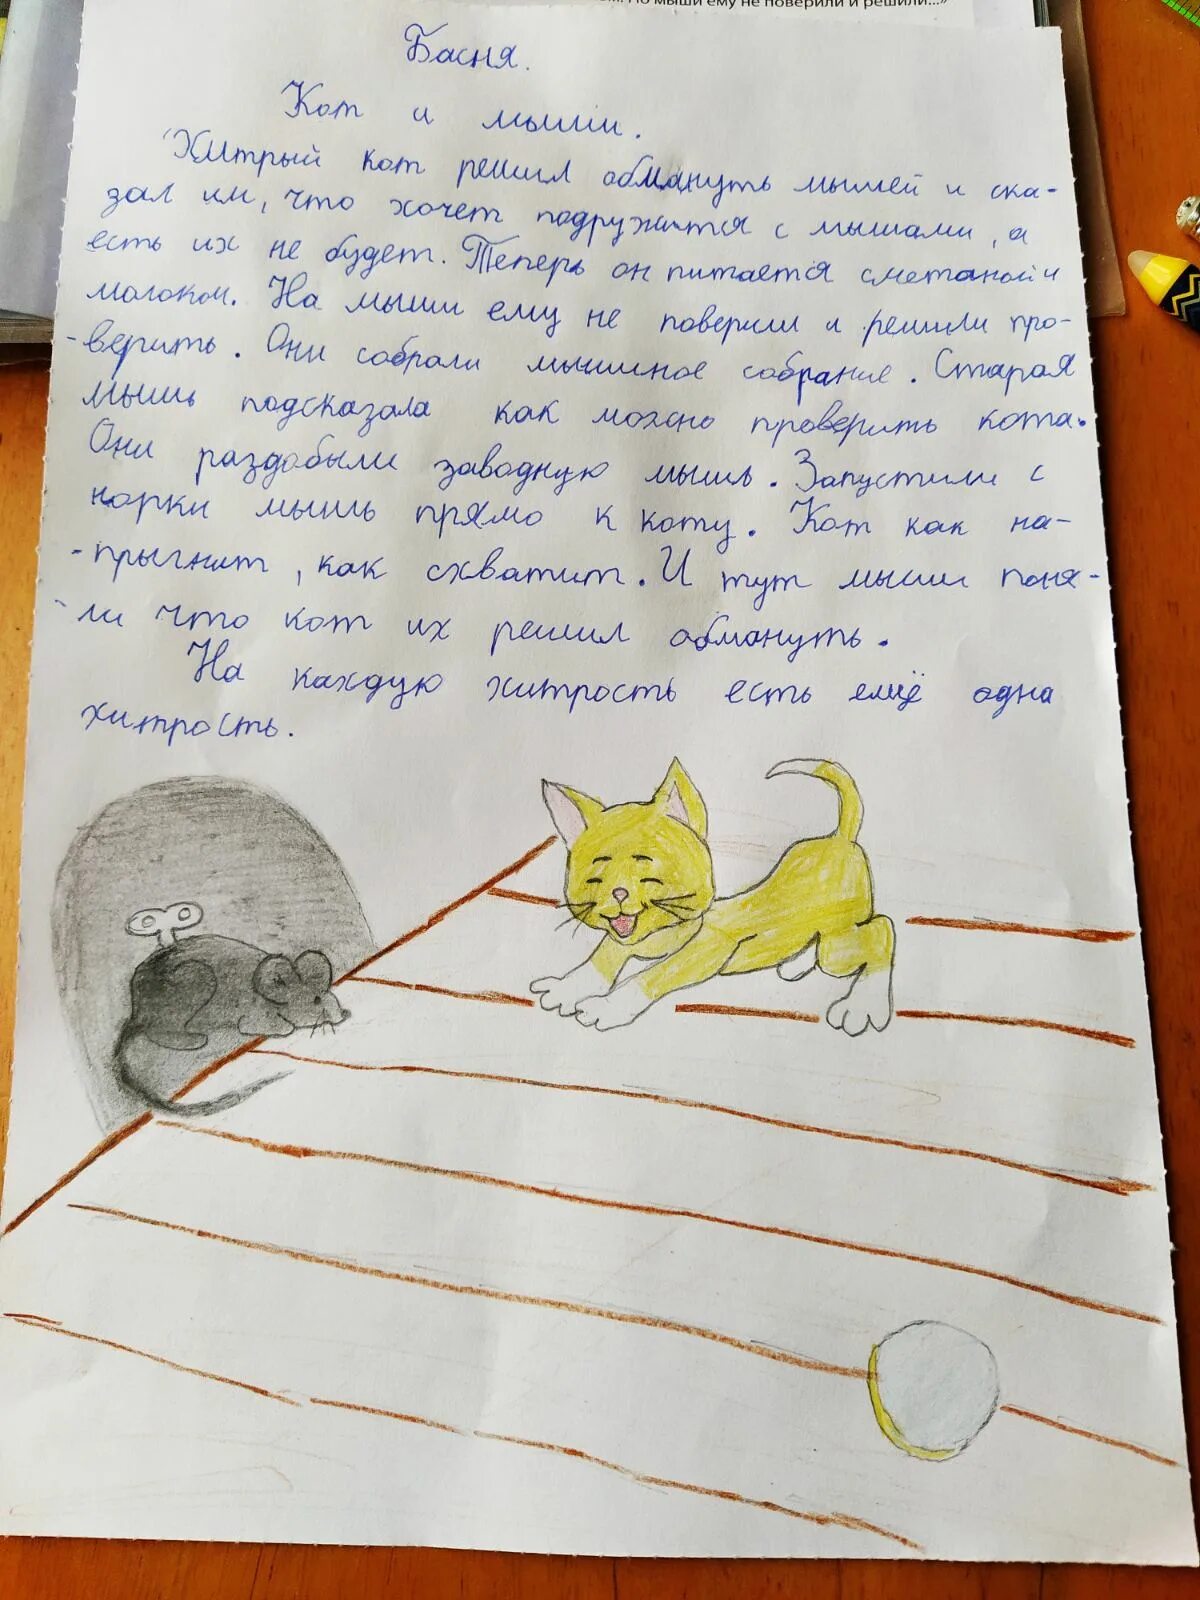 мыши ему не поверили и решили..."
Басня.
Кот и мыши.
Хитрый кот решил обмануть мышей и ска-
зал им, что хочет подружится с мышами, а
есть их не будет. Теперь он питается сметаной и
молоком. На мыши ему не поверили и решили про-
-верить. Они собрали мышиное собрание. Старая
мышь подсказала как можно проверить кота.
Они раздобыли заводную мышь. Запустили с
норки мышь прямо к коту. Кот как на-
-прыгнит, как схватит. И тут мыши поня-
-ли что кот их решил обмануть.
На каждую хитрость есть ещё одна
хитрость.